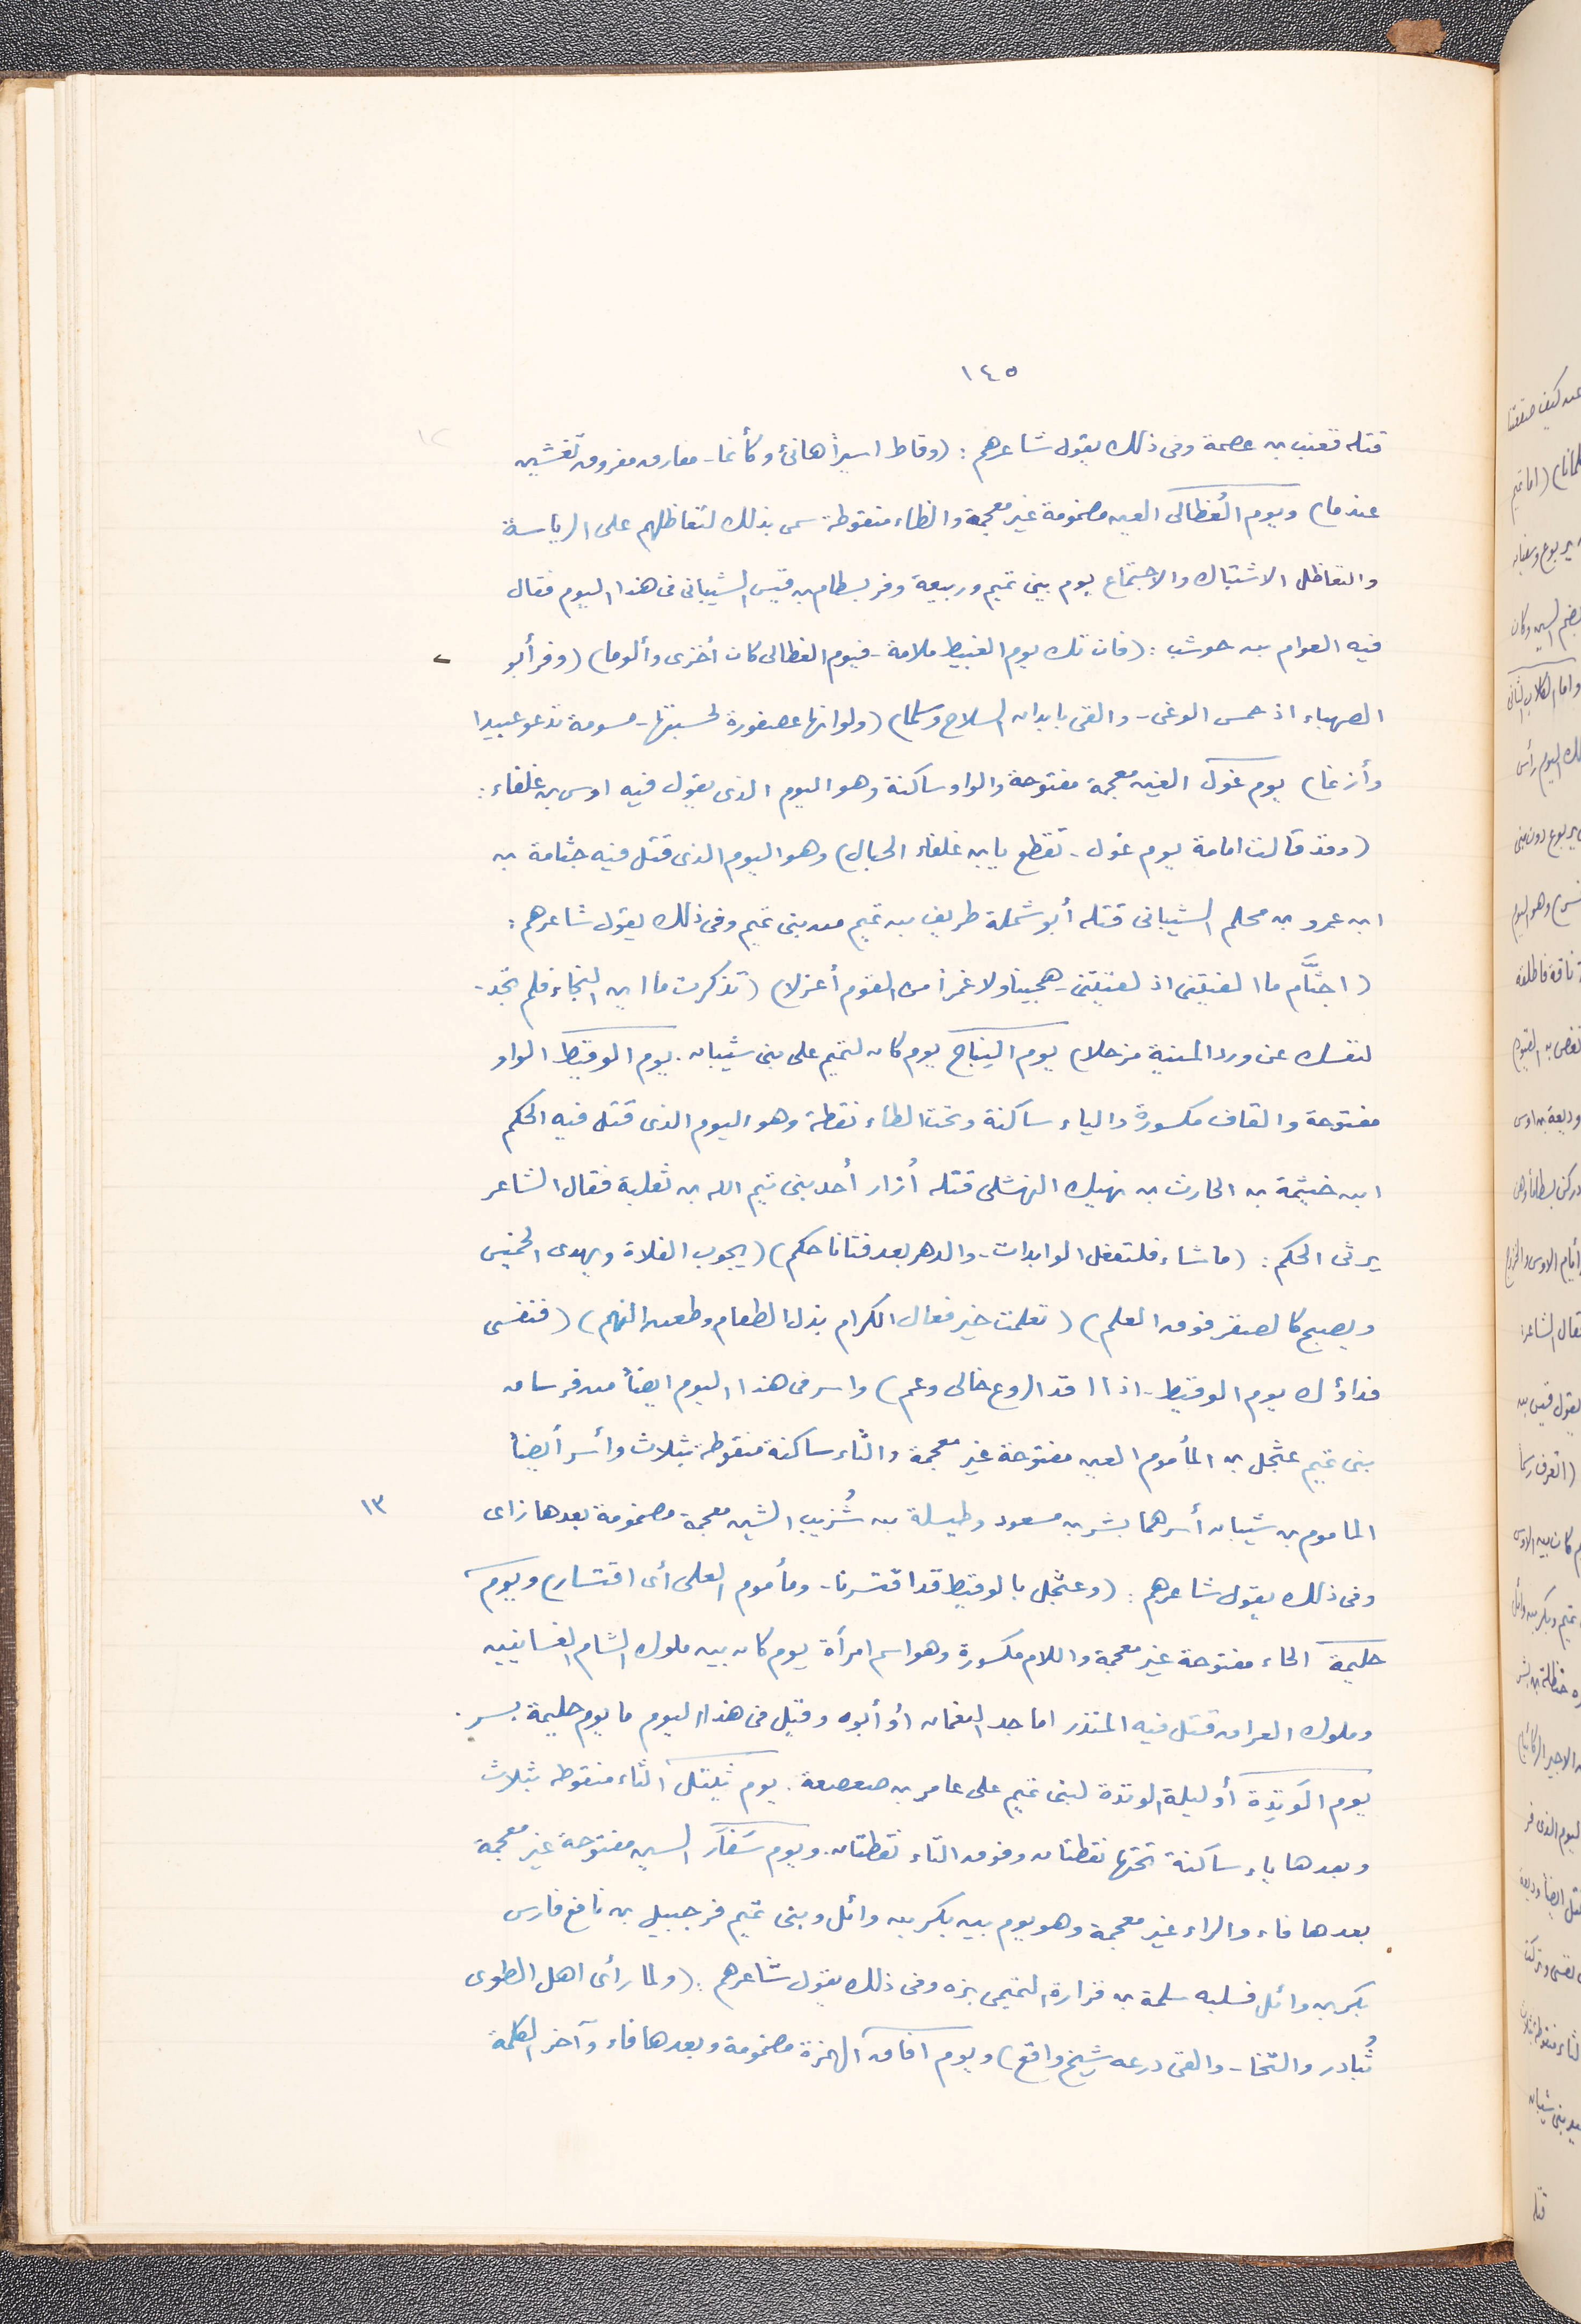 ١٤٥
قتله قعنب بن عصمة وفى ذلك يقول شاعرهم: (وقاظ اسيراً هانئ وكأنما - مفارق مفروق تغشين
عندما) ويوم العُظالى العين مضمومة غير معجمة والظاء منقوطة سمى بذلك لتعاظلهم على الرياسة
والتعاظل الاشتباك والاجتماع يوم بين تميم وربيعة وفر بسطام بن قيس الشيبانى فى هذا اليوم فقال
فيه العوام بن حوشب: (فان تك يوم الغبيط ملامة - فيوم العظالى كان أخزى وألوما) (وفر أبو
الصهباء اذ حمس الوغى - والقى بابدان السلاح وسلما) (ولو انها عصفورة لحسبتها - مسومة تدعو عبيدا
وأزنما) يوم غول الغين معجمة مفتوحة والواو ساكنة وهو اليوم الذى يقول فيه اوس بن غلفاء:
(وقد قالت امامة يوم غول - تقطع يابن غلفاء الحبال) وهو اليوم الذى قتل فيه جثامة بن
ابن عمرو بن محلم الشيبانى قتله أبو شملة طريف بن تميم من بنى تميم وفى ذلك يقول شاعرهم:
(اجثَّام ما الفيتنى اذ لقيتنى - هجينا ولا غمراً من القوم أعزلا) (تذكرت ما اين النجاء فلم تجد -
لنفسك عن ورد المنية مزحلا) يوم النباج يوم كان لتميم على بنى شيبان. يوم الوقيط الواو
مفتوحة والقاف مكسورة والياء ساكنة وتحت الطاء نقطة وهو اليوم الذى قتل فيه الحكم
ابن خيثمة بن الحارث بن نهيك النهشلى قتله أُزار أحد بنى تيم الله بن ثعلبة فقال الشاعر
يرثى الحكم: (ما شاء فلتفعل الوابدات - والدهر بعد فتانا حكم) (يجوب الفلاة ويهدى الخميس
ويصبح كالصقر فوق العلم) (تعلمت خير فعال الكرام بذل الطعام وطعن البهم) (فنفسى
فداؤك يوم الوقيط - اذا اقد الروع خالى وعم) واسر فى هذا اليوم ايضاً من فرسان
بنى تميم عثجل بن المأموم العين مفتوحة غير معجمة والثاء ساكنة منقوطة بثلاث وأسر أيضاً
١٣
الماموم بن شيبان أسرهما بشر بن مسعود وطيسلة بن شُزيب الشين معجمة مضمومة بعدها زاى
وفى ذلك يقول شاعرهم: (وعثجل بالوقيط قد اقتسرنا - ومأموم العلى أى اقتسار) ويوم
حليمة الحاء مفتوحة غير معجمة واللام مكسورة وهو اسم امرأة يوم كان بين ملوك الشام الغسانيين
وملوك العراق قتل فيه المنذر اما جد النعمان أو أبوه وقيل فى هذا اليوم ما يوم حليمة بسر.
يوم الوَتِدة أو ليلة الوتدة لبنى تميم على عامر بن صعصعة. يوم ثيتل الثاء منقوطه بثلاث
وبعدها ياء ساكنة تحتها نقطتان وفوق التاء نقطتان. ويوم سَفَار السين مفتوحة غير معجمة
بعدها فاء والراء غير معجمة وهو يوم بين بكر بن وائل وبنى تميم فر جبيل بن نافع فارس
بكر بن وائل فسلبه سلمة بن فزارة التميمى بزه وفى ذلك يقول شاعرهم: (ولما رأى اهل الطوى
تُبادر والنخا - والقى درعه شيخ واقع) ويوم افاق الهمزة مضمومة وبعدها فاء وآخر الكلمة